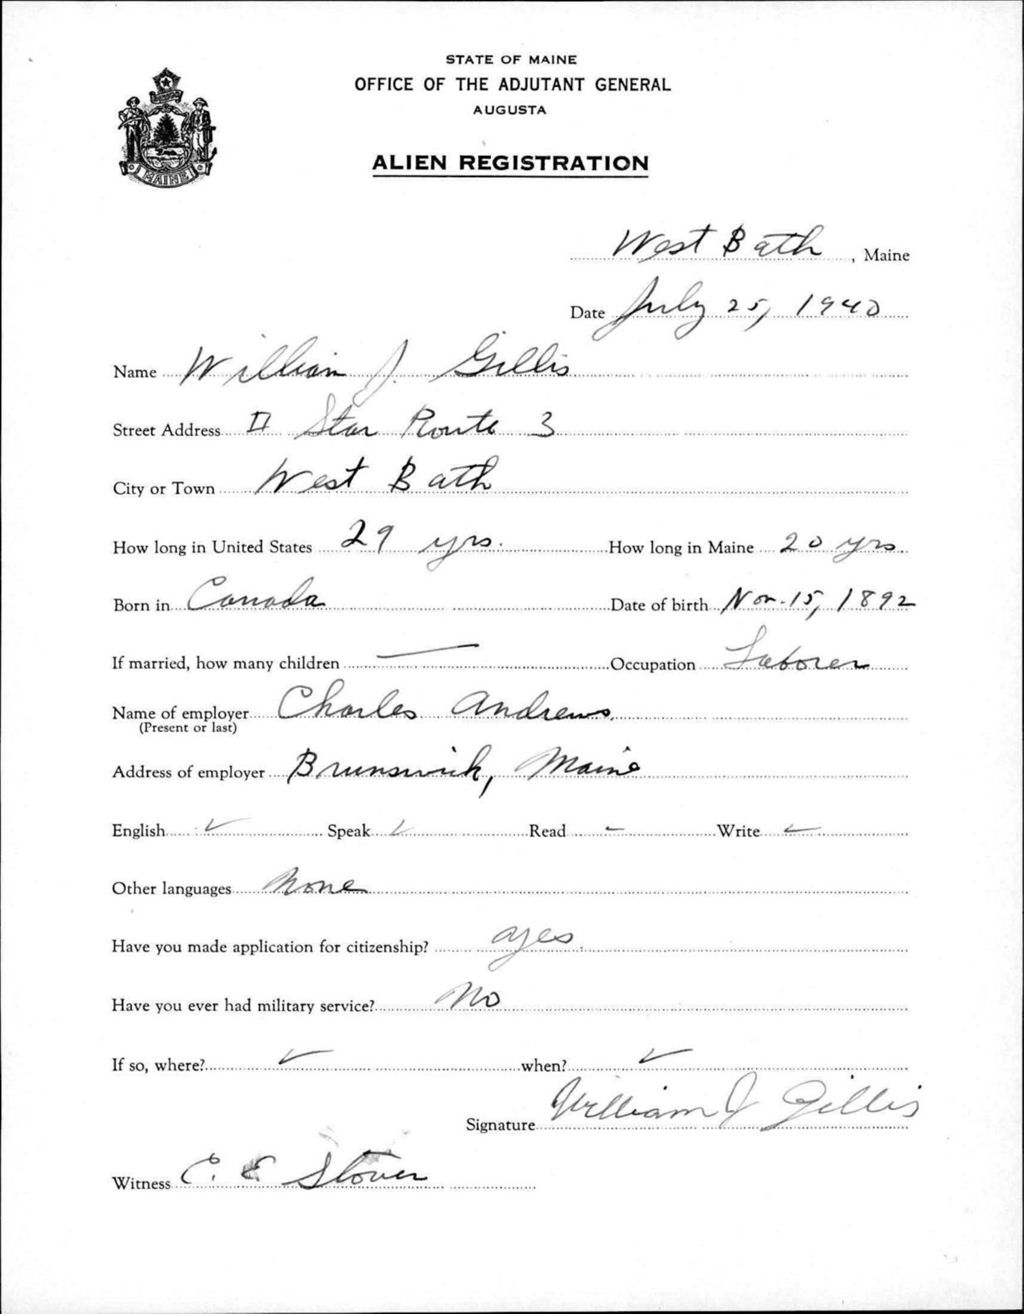 STATE OF MAINE
OFFICE OF THE ADJUTANT GENERAL
AUGUSTA
ALIEN REGISTRATION
MAINE
West Bath, Maine
Date July 25, 1940
Name William J. Gillis
Street Address Star Route 3
City or Town West Bath
How long in United States 29 yrs. How long in Maine 20 yrs
Born in Canada Date of birth Nov. 15, 1892
If married, how many children — Occupation Laborer
Name of employer Charles Andrews
(Present or last)
Address of employer Brunswick, Maine
English ✓ Speak ✓ Read - Write ✓
Other languages None
Have you made application for citizenship? yes
Have you ever had military service? No
If so, where? ✓ when? ✓
Signature William J Gillis
Witness C. E Stover